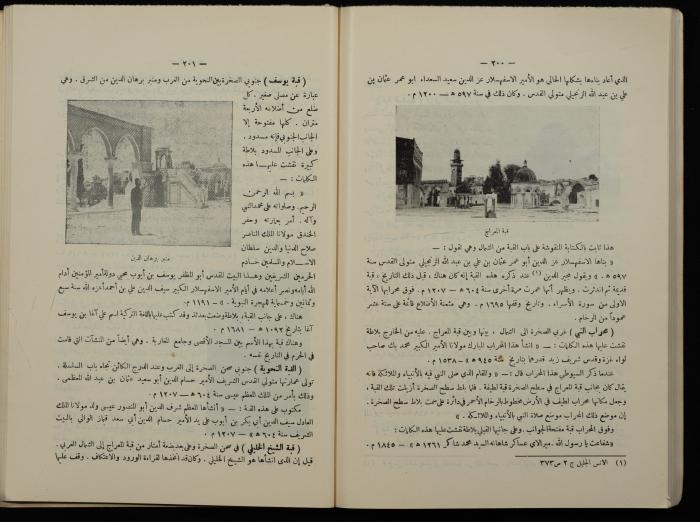 — ٢٠٠ —
الذي أعاد بناءها بشكلها الحالي هو الأمير الاسفهسلار عز الدين سعيد السعداء ابو عمر عثمان بن
علي بن عبد الله الزنجيلي متولي القدس . وكان ذلك في سنة ٥٩٧ هـ — ١٢٠٠ م .
قبة المعراج
هذا ثابت بالكتابة المنقوشة على باب القبة من الشمال وهي تقول : —
« بناها الاسفهسلار عز الدين أبو عمر عثمان بن علي بن عبد الله الزنجيلي متولي القدس سنة
٥٩٧ هـ . » ويقول مجير الدين (١) عند ذكره هذه القبة إنه كان هناك ، قبل ذلك التاريخ ، قبة
قديمة ثم اندثرت . ويظهر أنها عمرت مرة أخرى سنة ٦٠٤ هـ — ١٢٠٧ م . فوق محرابها الآية
الاولى من سورة الأسراء . وتاريخ وقفها ١٦٩٥ م . وهي مثمنة الأضلاع قائمة على ستة عشر
عموداً من الرخام .
( محراب النبي ) غربي الصخرة الى الشمال ، بينها وبين قبة المعراج . عليه من الخارج بلاطة
نقشت عليها هذه الكلمات : — « أنشأ هذا المحراب المبارك مولانا الأمير الكبير محمد بك صاحب
لواء غزة وقدس شريف زيد قدرهما بتاريخ سنة ٩٤٥ هـ » — ١٥٣٨ م .
عندما ذكر السيوطي هذا المحراب قال : — « والمقام الذي صلى النبي فيه بالأنبياء والملائكة فانه
يقال كان بجانب قبة المعراج في سطح الصخرة قبة لطيفة . فلما بلط سطح الصخرة أزيلت تلك القبة .
وجعل مكانها محراب لطيف في الأرض مخطوط بالرخام الأحمر في دائرة على سمت بلاط سطح الصخرة .
إن موضع ذلك المحراب موضع صلاة النبي بالأنبياء والملائكة . »
وفوق المحراب قبة مفتحة الجوانب . وعلى جانبها القبلي بلاطة نقشت عليها هذه الكلمات :
وشفاعت يا رسول الله . مير الاي عساكر شاهانه السيد محمد شاكر ١٢٦١ هـ » — ١٨٤٥ م .
(١) الانس الجليل ج ٢ ص ٣٧٣
— ٢٠١ —
( قبة يوسف ) جنوبي الصخرة بين النحوية من الغرب ومنبر برهان الدين من الشرق . وهي
عبارة عن مصلى صغير . كل
ضلع من أضلاعه الأربعة
متران . كلها مفتوحة إلا
الجانب الجنوبي فإنه مسدود .
وعلى الجانب المسدود بلاطة
كبيرة نقشت عليها هذه
الكلمات : —
« بسم الله الرحمن
الرحيم . وصلواته على محمد النبي
وآله . أمر بعمارته وحفر
الخندق مولانا الملك الناصر
صلاح الدنيا والدين سلطان
الاسلام والمسلمين خادم
منبر برهان الدين
الحرمين الشريفين وهذا البيت المقدس أبو المظفر يوسف بن أيوب محيي دولة أمير المؤمنين أدام
الله أيامه ونصر أعلامه في أيام الأمير الاسفهسلار الكبير سيف الدين علي بن أحمد أعزه الله سنة سبع
وثمانين وخمسماية للهجرة النبوية . » — ١١٩١ م .
هناك ، على جانب القبة ، بلاطة وضعت بعدئذ وقد كتب عليها باللغة التركية اسم علي آغا بن يوسف
آغا بتاريخ ١٠٩٢ هـ — ١٦٨١ م .
وهناك قبة بهذا الأسم بين المسجد الأقصى وجامع المغاربة . وهي أيضاً من المنشآت التي قامت
في الحرم في التاريخ نفسه .
( القبة النحوية ) جنوبي صحن الصخرة إلى الغرب وعند الدرج الكائن تجاه باب السلسلة .
تولى عمارتها متولي القدس الشريف الأمير حسام الدين أبو سعيد عثمان بن عبد الله المعظمي .
وذلك بأمر من الملك المعظم عيسى سنة ٦٠٤ هـ — ١٢٠٧ م .
مكتوب على هذه القبة : — « أنشأها المعظم شرف الدين أبو المنصور عيسى ولد مولانا الملك
العادل سيف الدين أبي بكر بن أيوب على يد الأمير حسام الدين أبي سعد قيماز الوالي بالبيت
الشريف سنة ٦٠٤ هـ » — ١٢٠٧ م .
( قبة الشيخ الخليلي ) في صحن الصخرة وعلى بعد بضعة أمتار من قبة المعراج إلى الشمال الغربي .
قيل إن الذي أنشأها هو الشيخ الخليلي . وكان قد اتخذها لقراءة الورود والاعتكاف . وقف عليها